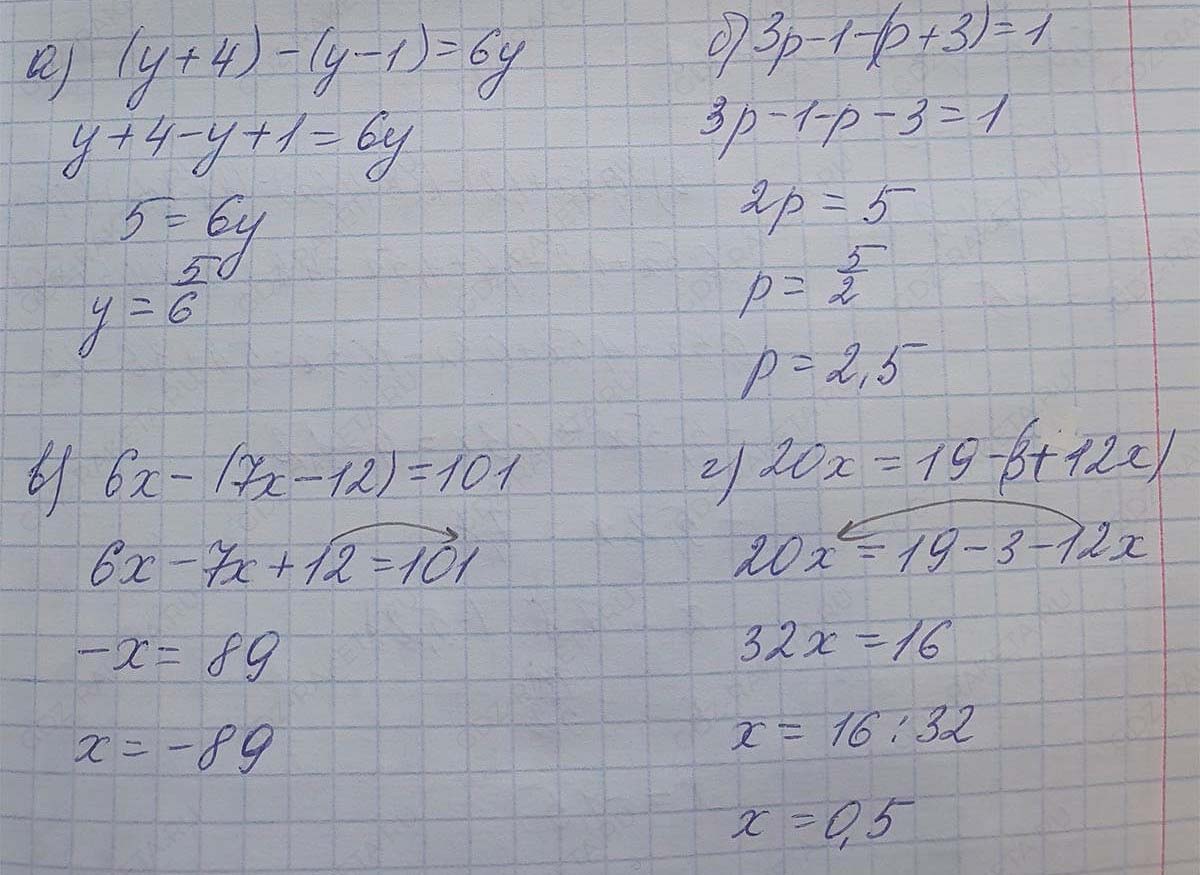 а) (y+4)-(y-1)=6y
y+4-y+1=6y
5=6y
y=5/6
б) 3p-1-(p+3)=1
3p-1-p-3=1
2p=5
p=5/2
p=2,5
в) 6x-(7x-12)=101
6x-7x+12=101
-x=89
x=-89
г) 20x=19-(3+12x)
20x=19-3-12x
32x=16
x=16:32
x=0,5